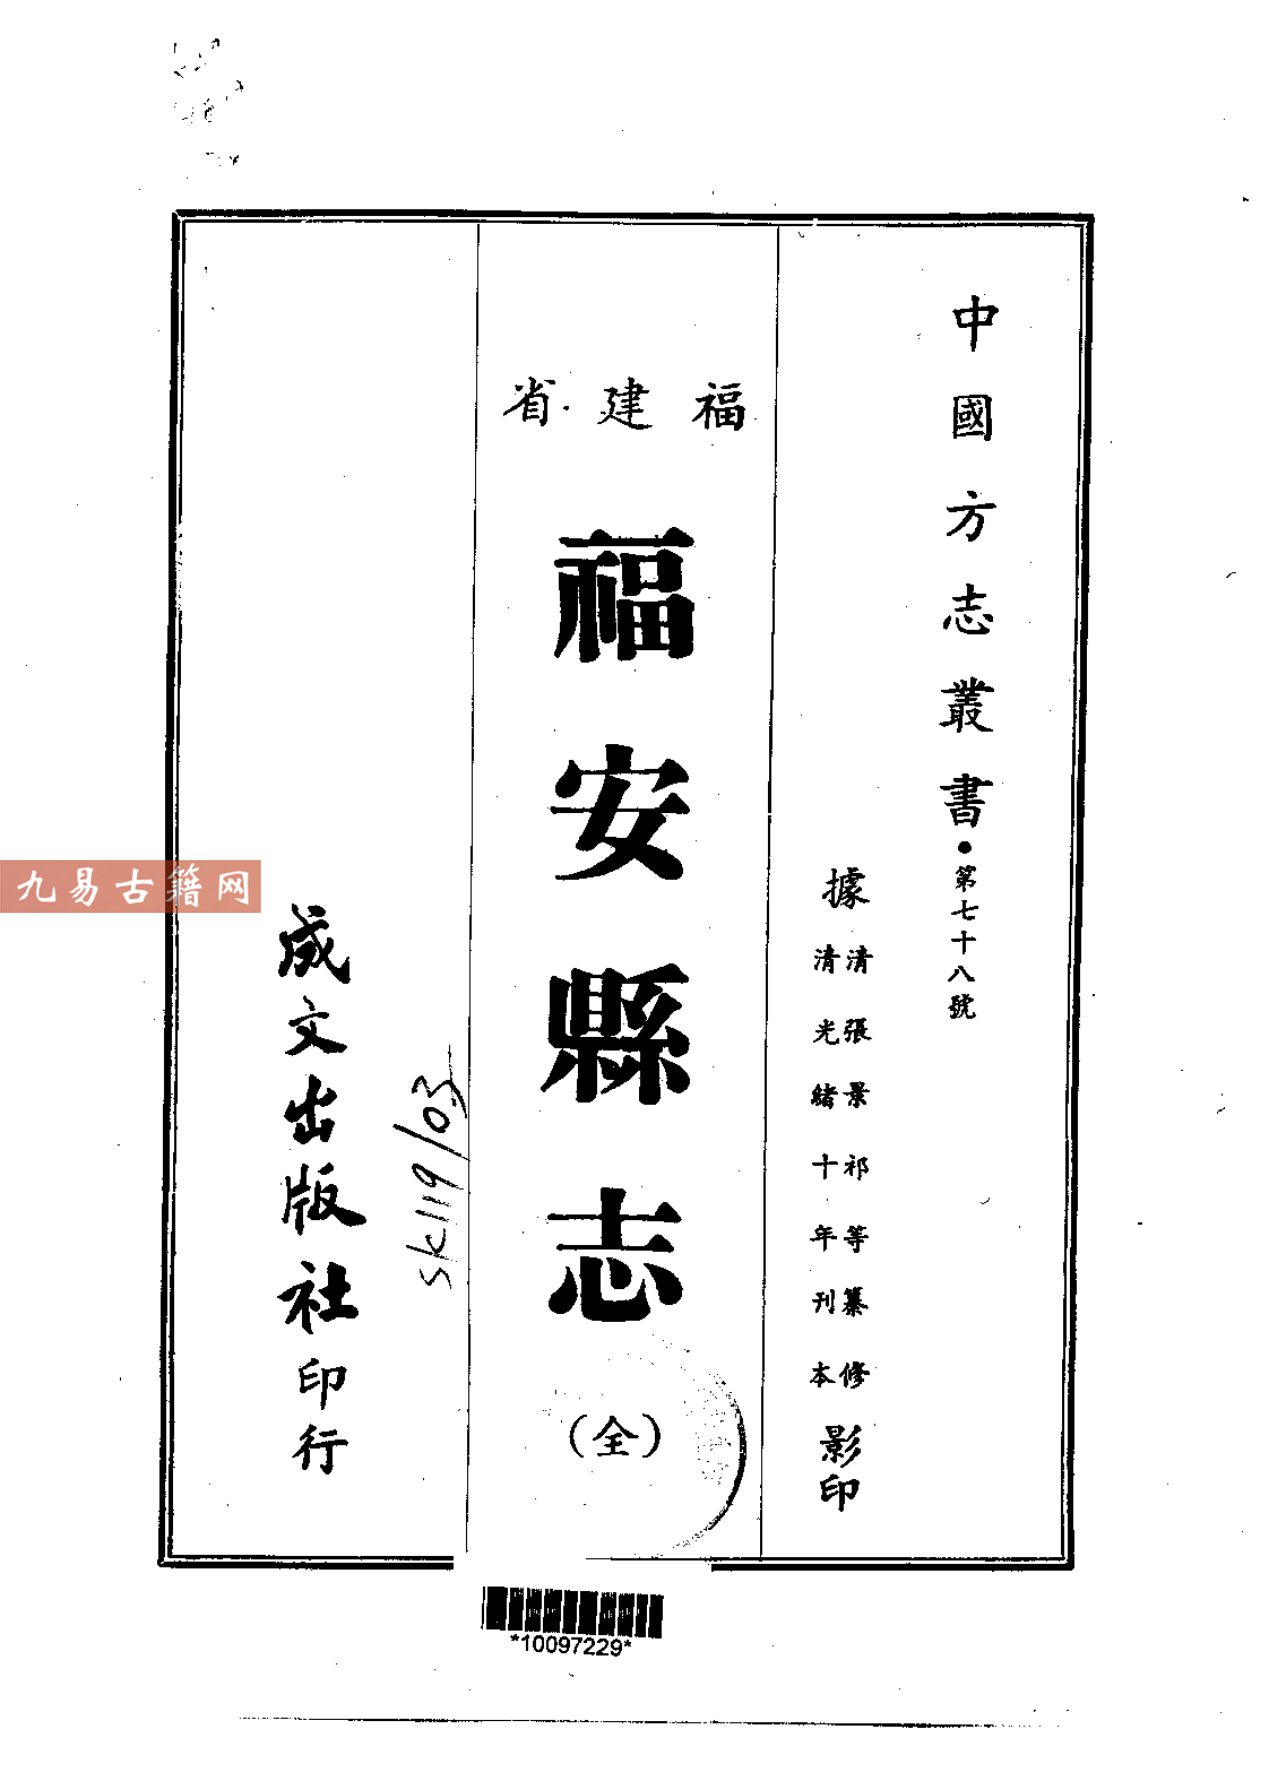 中國方志叢書•第七十八號
據
清張景祁等纂修
清光緒十年刊本
影印
福建省
福安縣志
(全)
成文出版社印行
sk119/03
九易古籍网
*10097229*